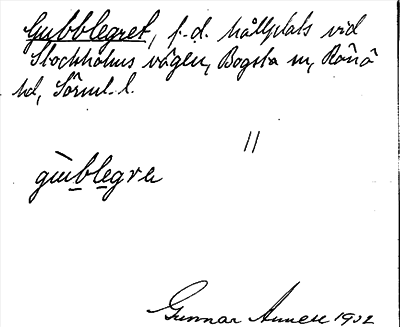 Gubblegret, f.d. hållplats vid
Stockholms vägen, Bogsta sn, Rönö
hd, Sörml. l.
//
Gunnar 1932